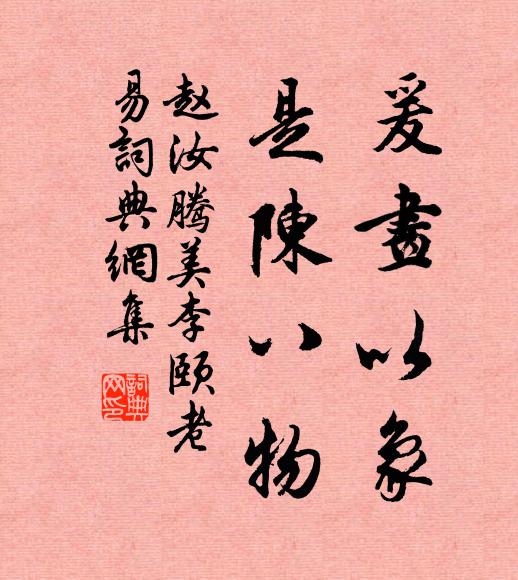 爰畫以象
是陳八物
赵汝腾美李颐老
易詞典網集
詞典
网印